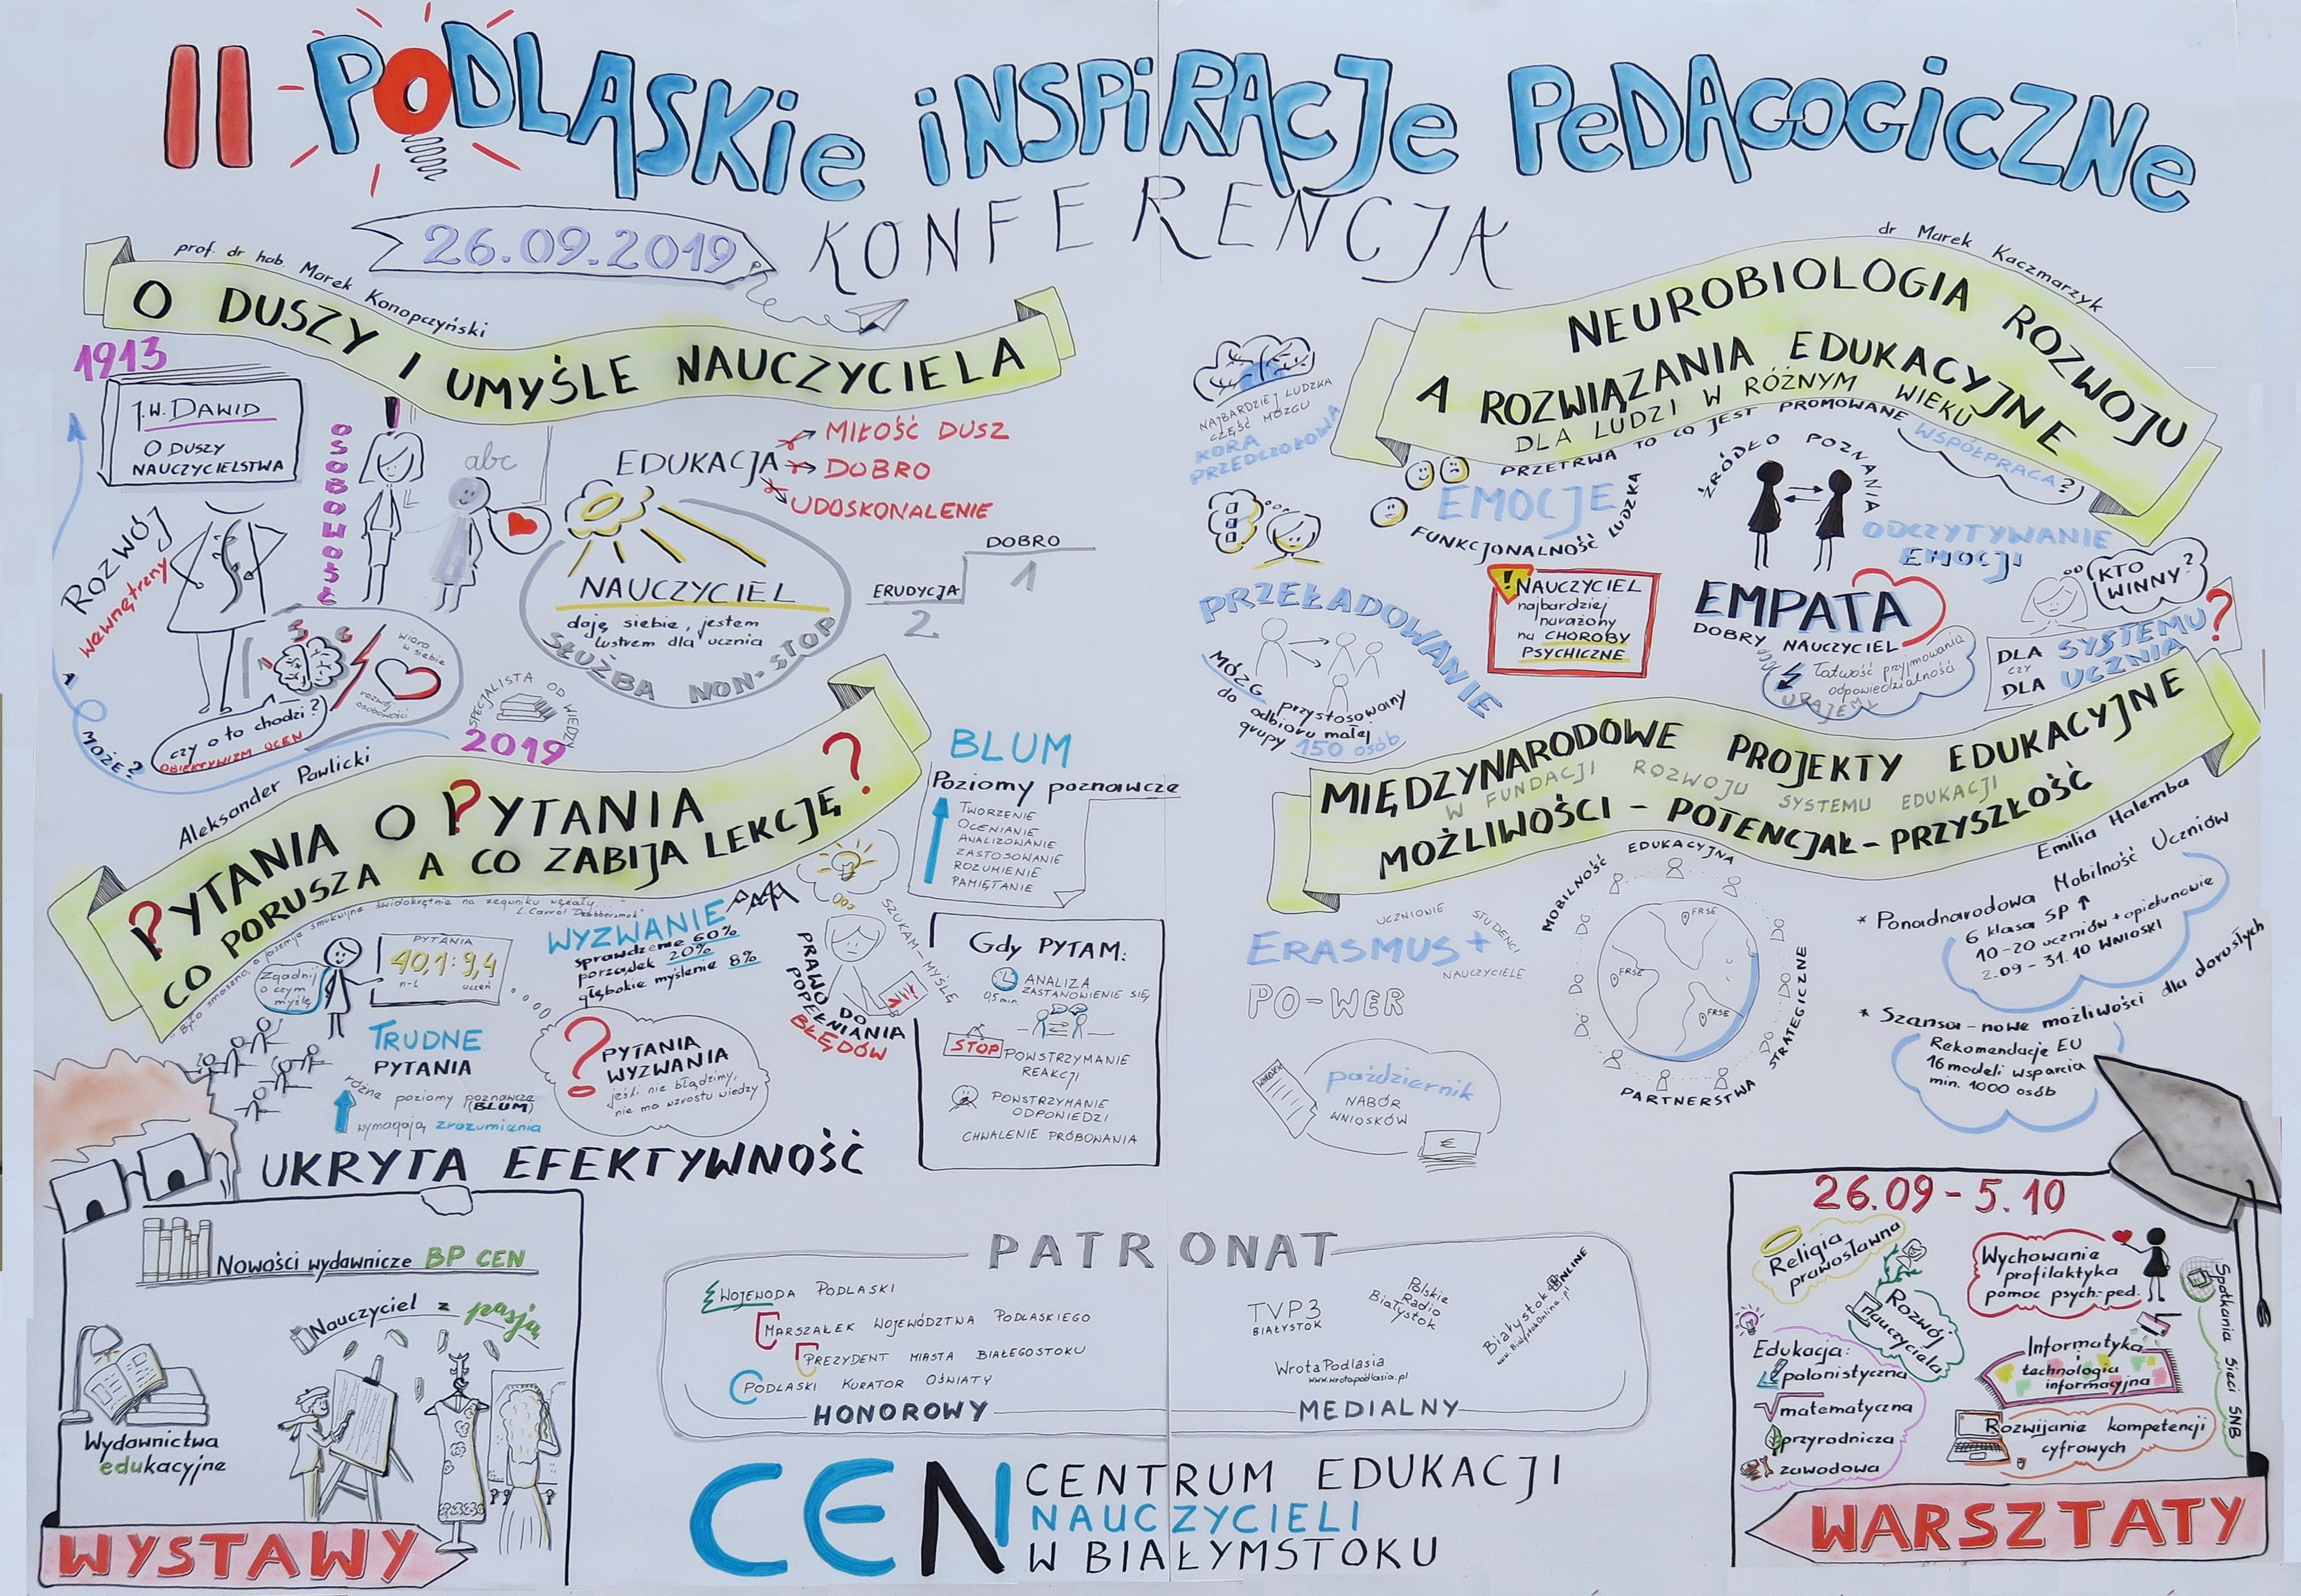 II PODLASKIE INSPIRACJE PEDAGOGICZNE
KONFERENCJA
26.09.2019
prof. dr hab. Marek Konopczyński
O DUSZY I UMYŚLE NAUCZYCIELA
1913
J.W. DAWID
O DUSZY
NAUCZYCIELSTWA
OSOBOWOŚĆ
abc
ROZWÓJ
wewnętrzny
EDUKACJA
MIŁOŚĆ DUSZ
DOBRO
UDOSKONALENIE
NAUCZYCIEL
daję siebie, jestem
lustrem dla ucznia
SŁUŻBA NON-STOP
DOBRO
1
ERUDYCJA
2
wiara
w siebie
rozwój
osobowości
czy o to chodzi?
OBIEKTYWIZM OCEN
A MOŻE?
SPECJALISTA OD WIEDZY
2019
Aleksander Pawlicki
PYTANIA O PYTANIA
CO PORUSZA A CO ZABIJA LEKCJĘ?
BLUM
Poziomy poznawcze
TWORZENIE
OCENIANIE
ANALIZOWANIE
ZASTOSOWANIE
ROZUMIENIE
PAMIĘTANIE
Zgadnij
o czym
myślę
PYTANIA
40,1 : 9,4
n-l uczeń
WYZWANIE
sprawdzenie 60%
porządek 20%
głębokie myślenie 8%
TRUDNE
PYTANIA
różne poziomy poznawcze
(BLUM)
wymagają zrozumienia
PYTANIA
WYZWANIA
jeśli nie błądzimy,
nie ma wzrostu wiedzy
SZUKAM - MYŚLĘ
PRAWO
DO
POPEŁNIANIA
BŁĘDÓW
Gdy PYTAM:
0,5 min.
ANALIZA
ZASTANOWIENIE SIĘ
STOP
POWSTRZYMANIE
REAKCJI
POWSTRZYMANIE
ODPOWIEDZI
CHWALENIE PRÓBOWANIA
UKRYTA EFEKTYWNOŚĆ
dr Marek Kaczmarzyk
NEUROBIOLOGIA ROZWOJU
A ROZWIĄZANIA EDUKACYJNE
DLA LUDZI W RÓŻNYM WIEKU
NAJBARDZIEJ LUDZKA
CZĘŚĆ MÓZGU
KORA
PRZEDCZOŁOWA
PRZETRWA TO CO JEST PROMOWANE
WSPÓŁPRACA?
EMOCJE
FUNKCJONALNOŚĆ LUDZKA
ŹRÓDŁO POZNANIA
ODCZYTYWANIE
EMOCJI
PRZEŁADOWANIE
MÓZG przystosowany
do odbioru małej
grupy 150 osób
! NAUCZYCIEL
najbardziej
narażony
na CHOROBY
PSYCHICZNE
EMPATA
DOBRY NAUCZYCIEL
łatwość przyjmowania
odpowiedzialności
KTO
WINNY?
DLA SYSTEMU
CZY
DLA UCZNIA
?
MIĘDZYNARODOWE PROJEKTY EDUKACYJNE
W FUNDACJI ROZWOJU SYSTEMU EDUKACJI
MOŻLIWOŚCI - POTENCJAŁ - PRZYSZŁOŚĆ
Emilia Halemba
MOBILNOŚĆ EDUKACYJNA
PARTNERSTWA STRATEGICZNE
FRSE
FRSE
FRSE
UCZNIOWIE
STUDENCI
ERASMUS+
NAUCZYCIELE
PO-WER
WNIOSEK
październik
NABÓR
WNIOSKÓW
€
* Ponadnarodowa Mobilność Uczniów
6 klasa SP ↑
10-20 uczniów + opiekunowie
2.09 - 31.10 WNIOSKI
* Szansa - nowe możliwości dla dorosłych
Rekomendacje EU
16 modeli wsparcia
min. 1000 osób
Nowości wydawnicze BP CEN
Nauczyciel z pasją
Wydawnictwa
edukacyjne
WYSTAWY
PATRONAT
WOJEWODA PODLASKI
MARSZAŁEK WOJEWÓDZTWA PODLASKIEGO
PREZYDENT MIASTA BIAŁEGOSTOKU
PODLASKI KURATOR OŚWIATY
HONOROWY
TVP3
BIAŁYSTOK
Polskie
Radio
Białystok
Białystok ONLINE
www.BialystokOnline.pl
Wrota Podlasia
www.wrotapodlasia.pl
MEDIALNY
CEN
CENTRUM EDUKACJI
NAUCZYCIELI
W BIAŁYMSTOKU
26.09 - 5.10
Religia
prawosławna
Rozwój
nauczyciela
Wychowanie
profilaktyka
pomoc psych-ped.
Spotkania Sieci SNB
Edukacja:
polonistyczna
matematyczna
przyrodnicza
zawodowa
Informatyka
i
technologia
informacyjna
Rozwijanie kompetencji
cyfrowych
WARSZTATY